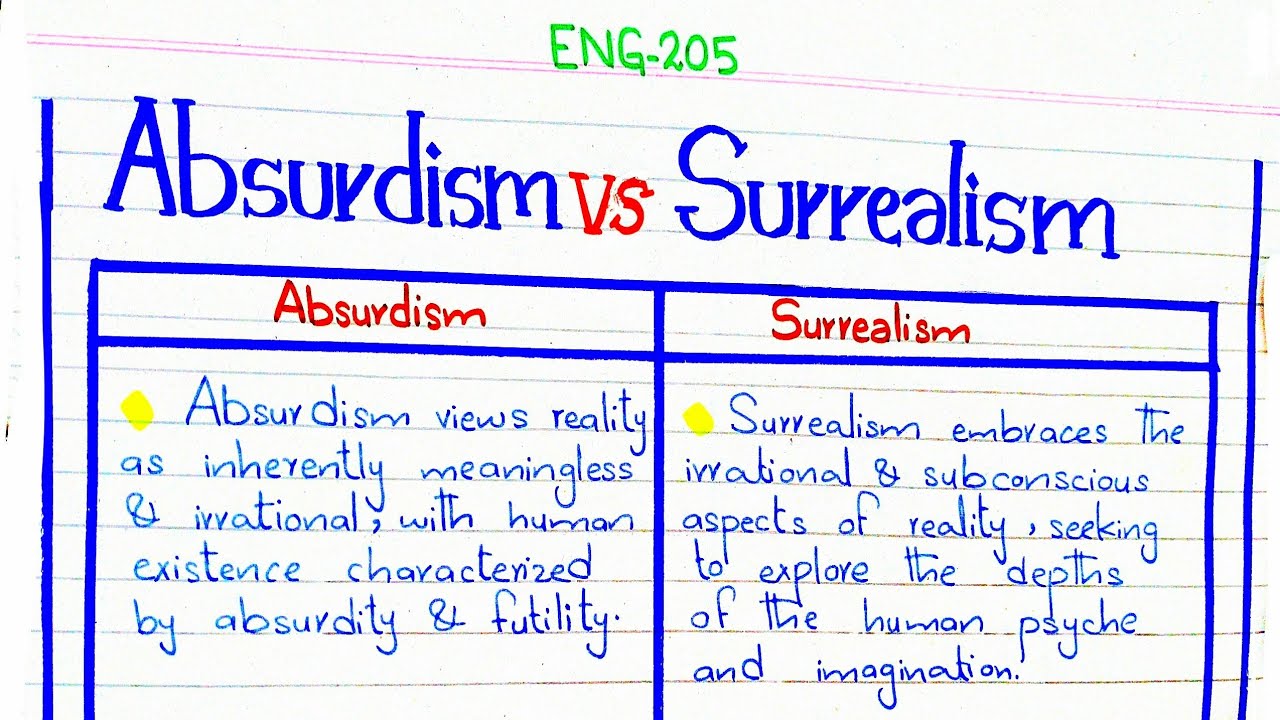 ENG-205
Absurdism vs Surrealism
Absurdism
Surrealism
Absurdism views reality
as inherently meaningless
& irrational, with human
existence characterized
by absurdity & futility.
Surrealism embraces the
irrational & subconscious
aspects of reality, seeking
to explore the depths
of the human psyche
and imagination.